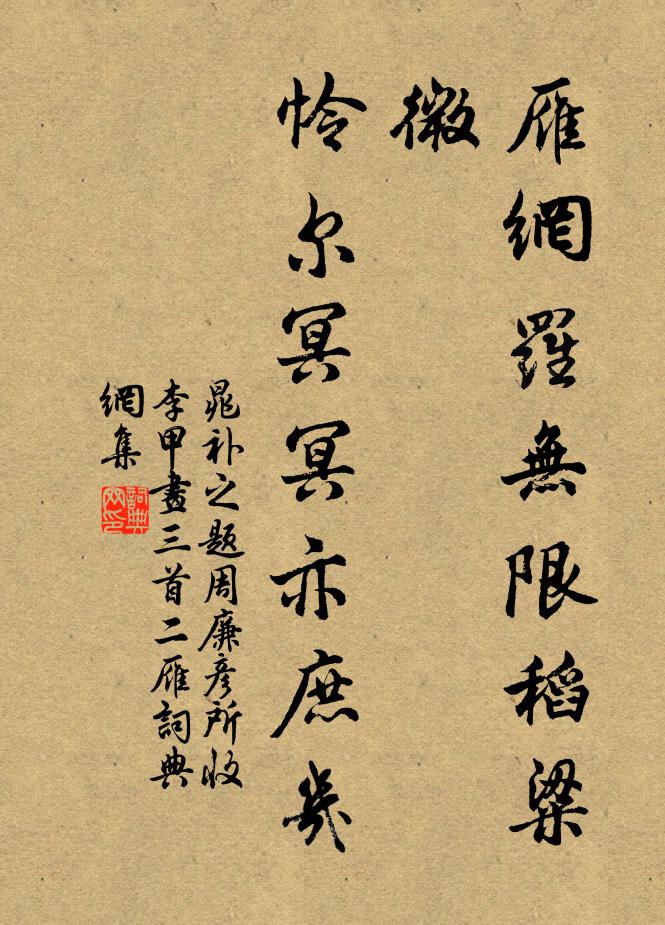 雁網羅無限稻梁
微
怜尔冥冥亦庶幾
晁补之题周廉彦所收
李甲畫三首二雁詞典
網集
詞典网印